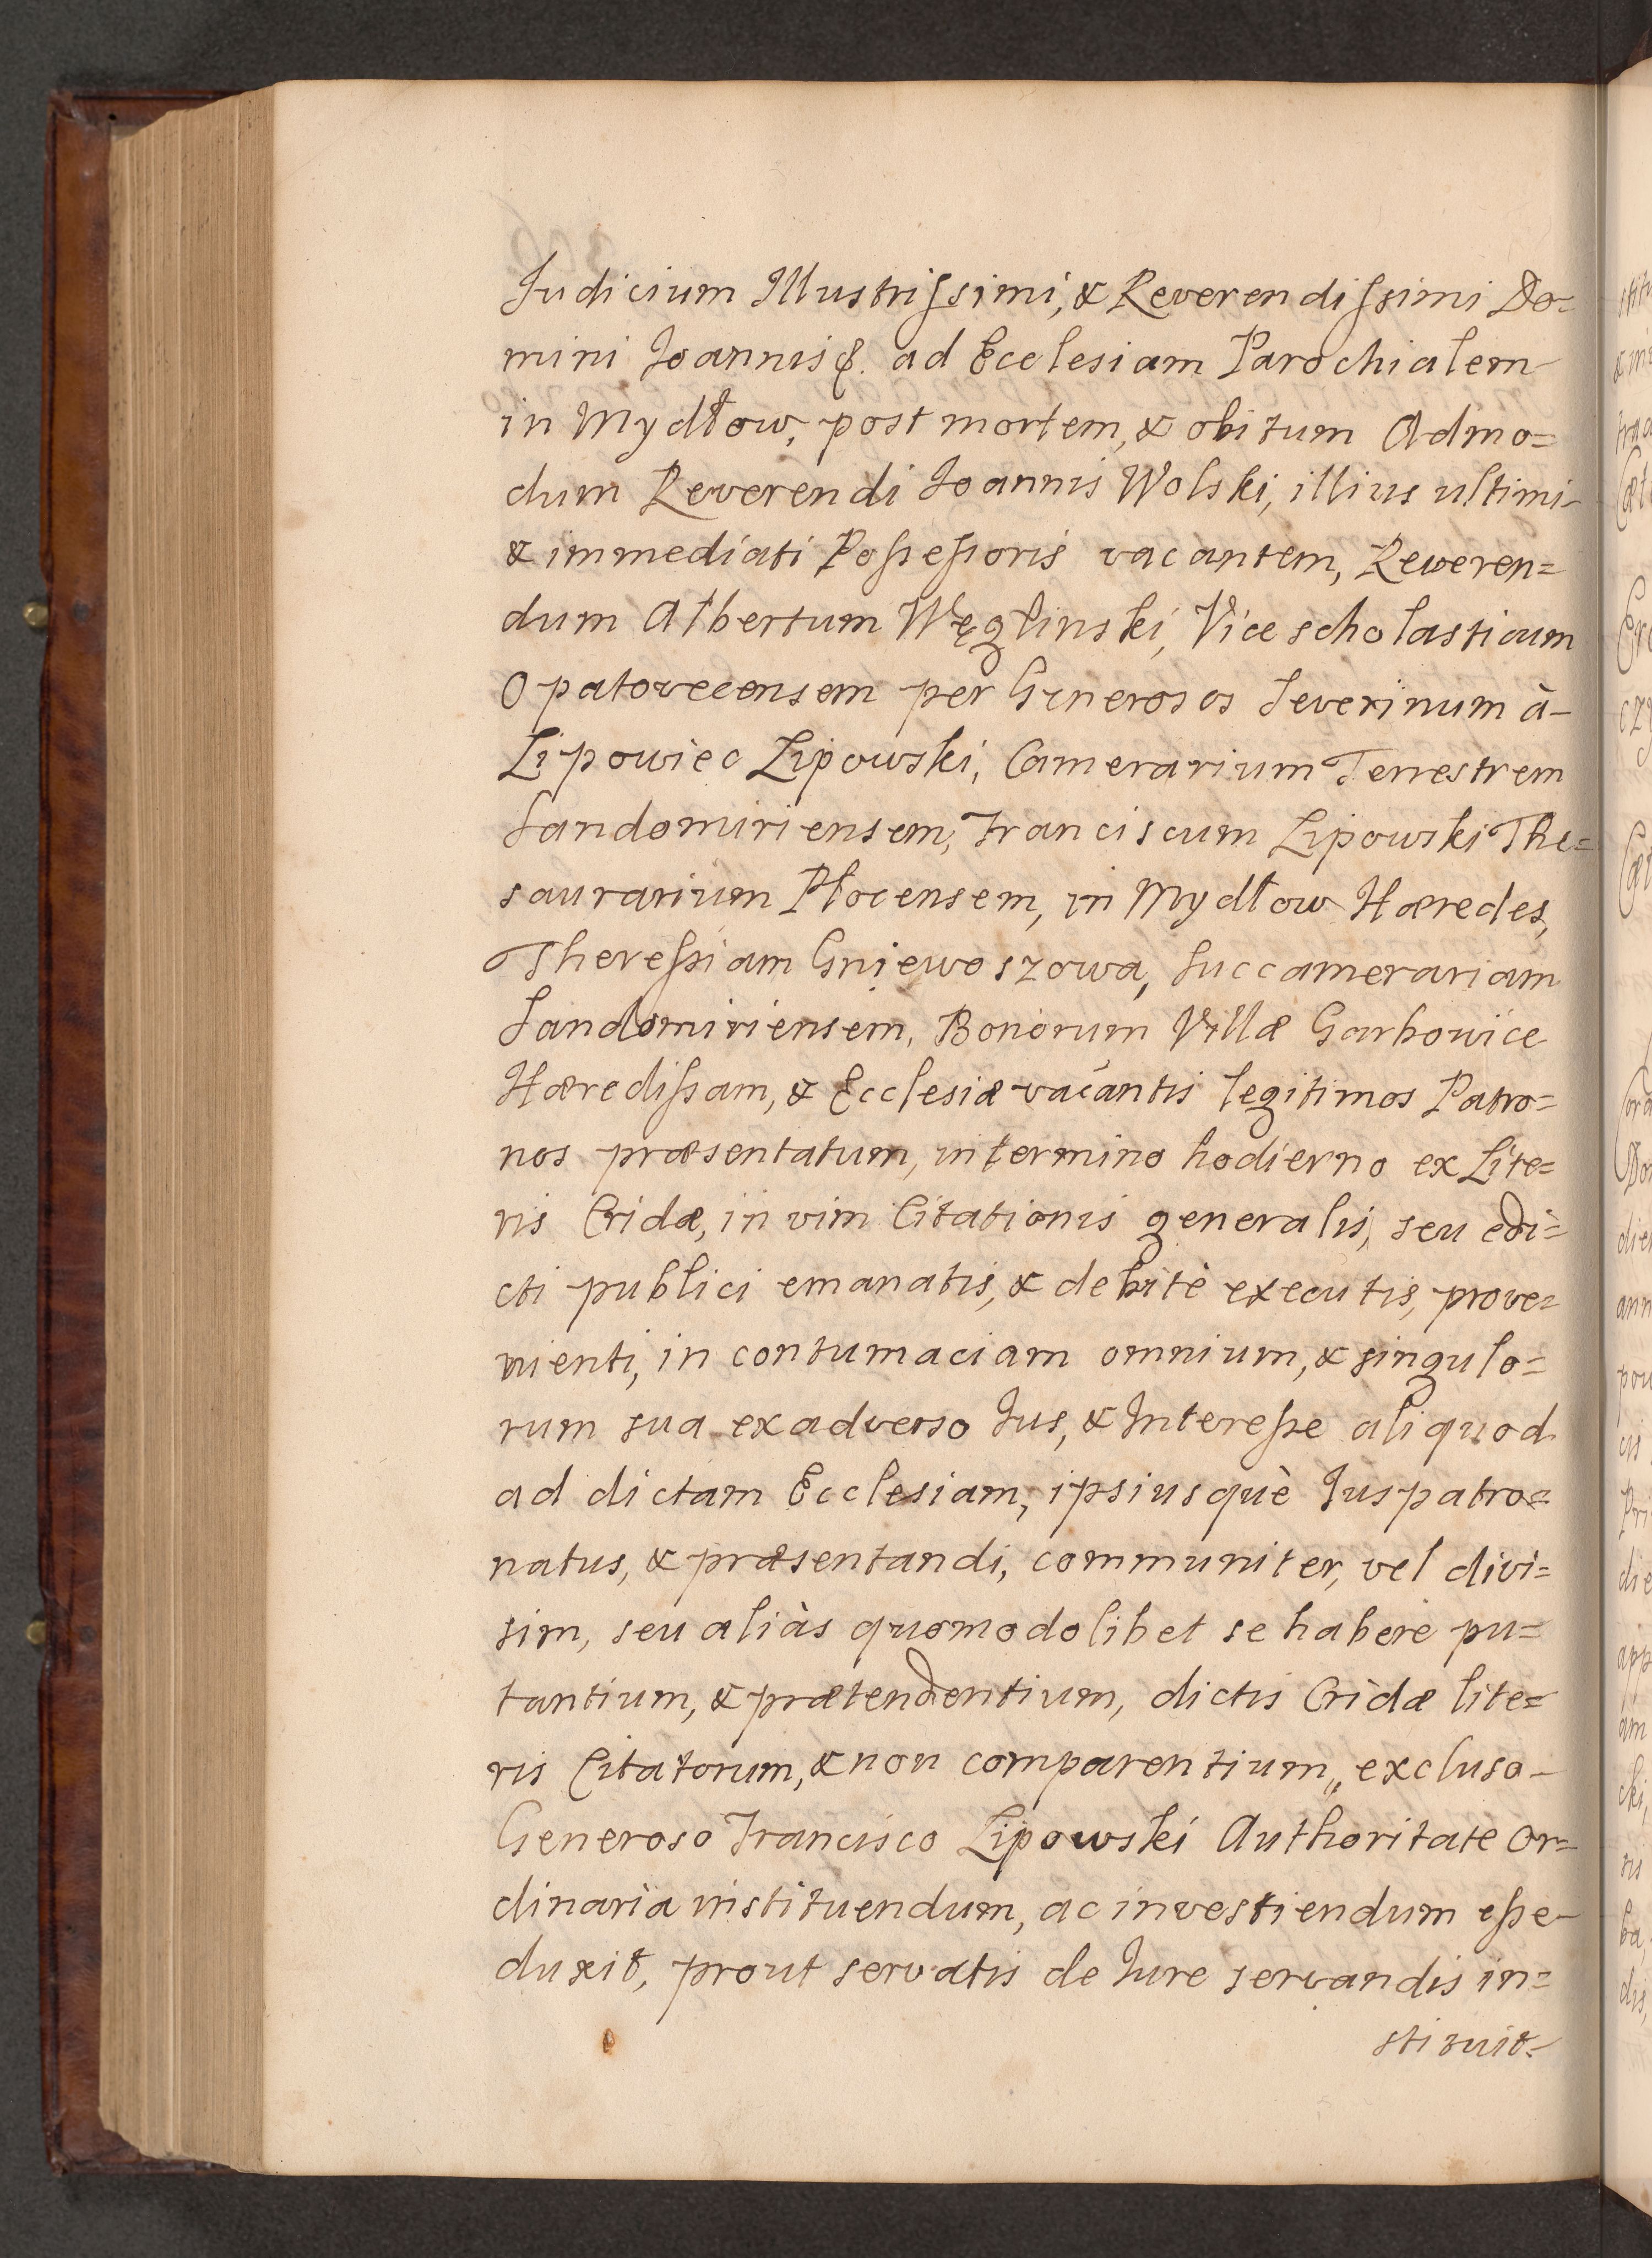 Judicium Illustrissimi, & Reverendissimi Do=
mini Joannis &. ad Ecclesiam Parochialem
in Mydłow, post mortem, & obitum Admo=
dum Reverendi Joannis Wolski, illius ultimi
& immediati Possessoris vacantem, Reveren=
dum Albertum Węglinski, Vice scholasticum
Opatovecensem per Generosos Severinum à
Lipowiec Lipowski, Camerarium Terrestrem
Sandomiriensem, Franciscum Lipowski The=
saurarium Płocensem, in Mydłow Hæredes,
Theressiam Gniewoszowa, Succamerariam
Sandomiriensem, Bonorum Villæ Garbowice
Hæredissam, & Ecclesiæ vacantis legitimos Patro=
nos præsentatum, in termino hodierno ex Lite=
ris Cridæ, in vim Citationis generalis, seu edi=
cti publici emanatis, & debitè executis, prove=
nienti, in contumaciam omnium, & singulo=
rum sua ex adverso Jus, & Interesse aliquod
ad dictam Ecclesiam, ipsiusquè Juspatro=
natus, & præsentandi, communiter, vel divi=
sim, seu aliàs quomodolibet se habere pu=
tantium, & prætendentium, dictis Cridæ lite=
ris Citatorum, & non comparentium, excluso
Generoso Francisco Lipowski Authoritate Or=
dinaria instituendum, ac investiendum esse
duxit, prout servatis de Jure servandis in=
stituit